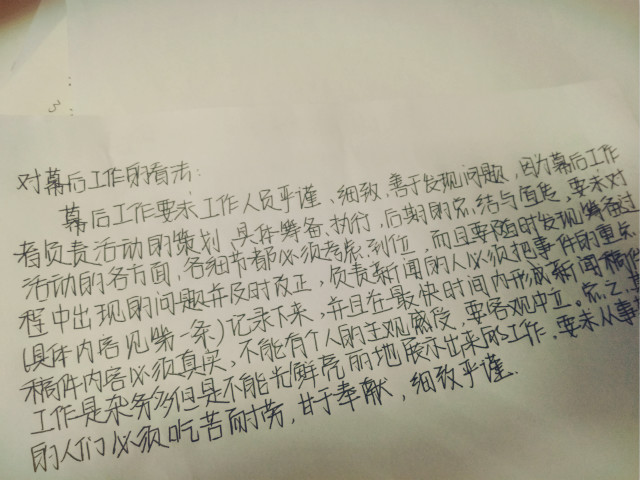 3
对幕后工作的看法:
幕后工作要求工作人员严谨、细致,善于发现问题,因为幕后工作
者负责活动的策划、具体筹备、执行,后期的总结与宣传,要求对
活动的各方面,各细节都必须考虑到位,而且要随时发现筹备过
程中出现的问题并及时改正,负责新闻的人必须把事件的重点
(具体内容见第一条)记录下来,并且在最快时间内形成新闻稿件
稿件内容必须真实,不能有个人的主观感受,要客观中立。总之,幕
工作是杂务多但是不能光鲜亮丽地展示出来的工作,要求从事
的人们必须吃苦耐劳,甘于奉献,细致严谨.